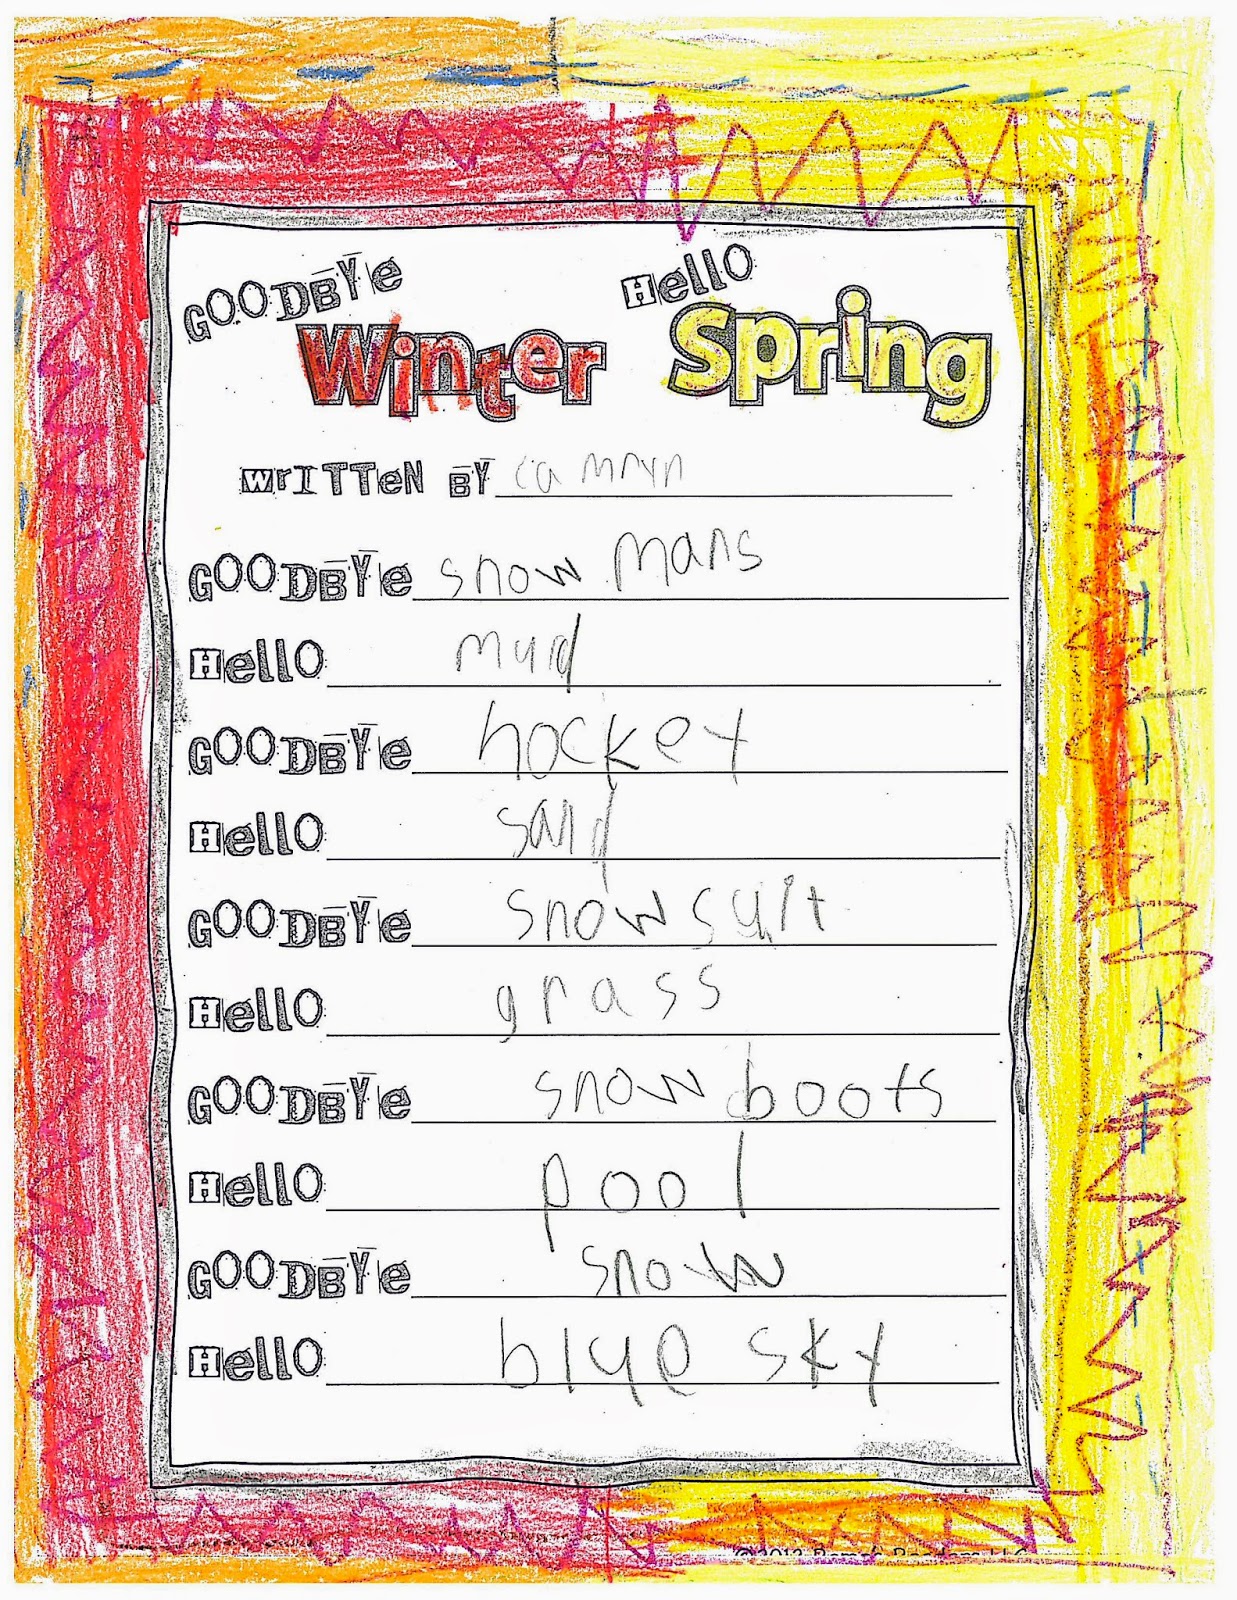 GOODBYE Hello
Winter Spring
WRITTEN BY camryn
GOODBYE snow mans
Hello mud
GOODBYE hockey
Hello sand
GOODBYE snow suit
Hello grass
GOODBYE snow boots
Hello pool
GOODBYE snow
Hello blue sky
©2013